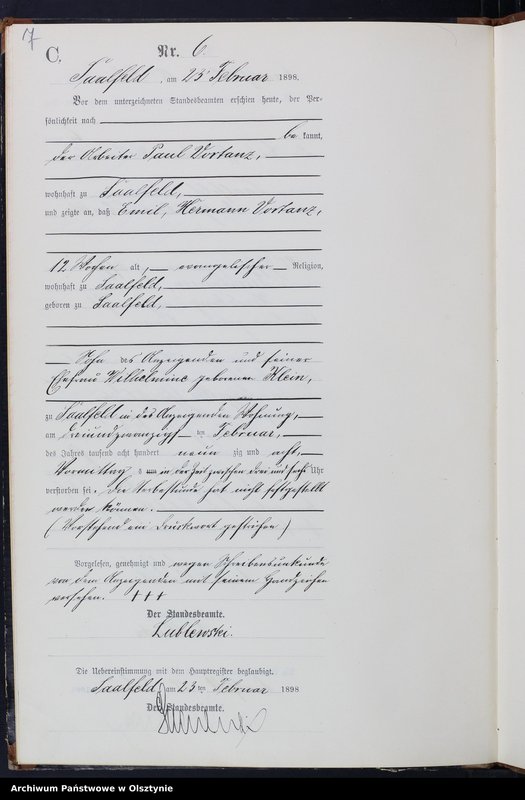 7
C.
Nr. 6.
Saalfeld, am 23ten Februar 1898.
Vor dem unterzeichneten Standesbeamten erschien heute, der Per-
sönlichkeit nach
be kannt,
der Arbeiter Paul Vortanz,
wohnhaft zu Saalfeld,
und zeigte an, daß Emil, Hermann Vortanz,
12 Wochen alt, evangelischer Religion,
wohnhaft zu Saalfeld,
geboren zu Saalfeld,
Sohn des Anzeigenden und seiner
Ehefrau Wilhelmine geborenen Klein,
zu Saalfeld in des Anzeigenden Wohnung,
am dreiundzwanzigsten Februar,
des Jahres tausend acht hundert neunzig und acht,
Vormittags um in der Zeit zwischen drei und sechs Uhr
verstorben sei. Die Sterbestunde hat nicht festgestellt
werden können.
(Vorstehend ein Druckwort gestrichen)
Vorgelesen, genehmigt und wegen Schreibensunkunde
von dem Anzeigenden mit seinem Handzeichen
versehen. +++
Der Standesbeamte.
Lublewski.
Die Uebereinstimmung mit dem Hauptregister beglaubigt.
Saalfeld, am 23ten Februar 1898
Der Standesbeamte.
Archiwum Państwowe w Olsztynie